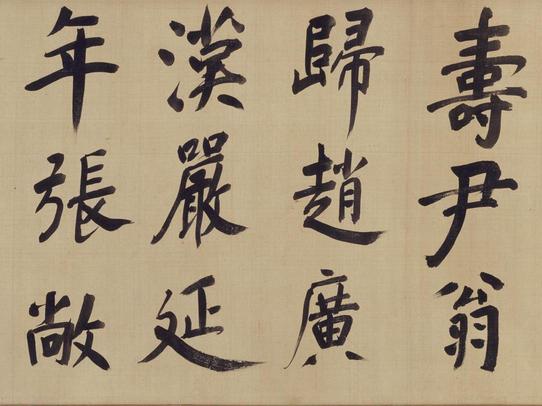 壽尹翁
歸趙廣
漢嚴延
年張敞